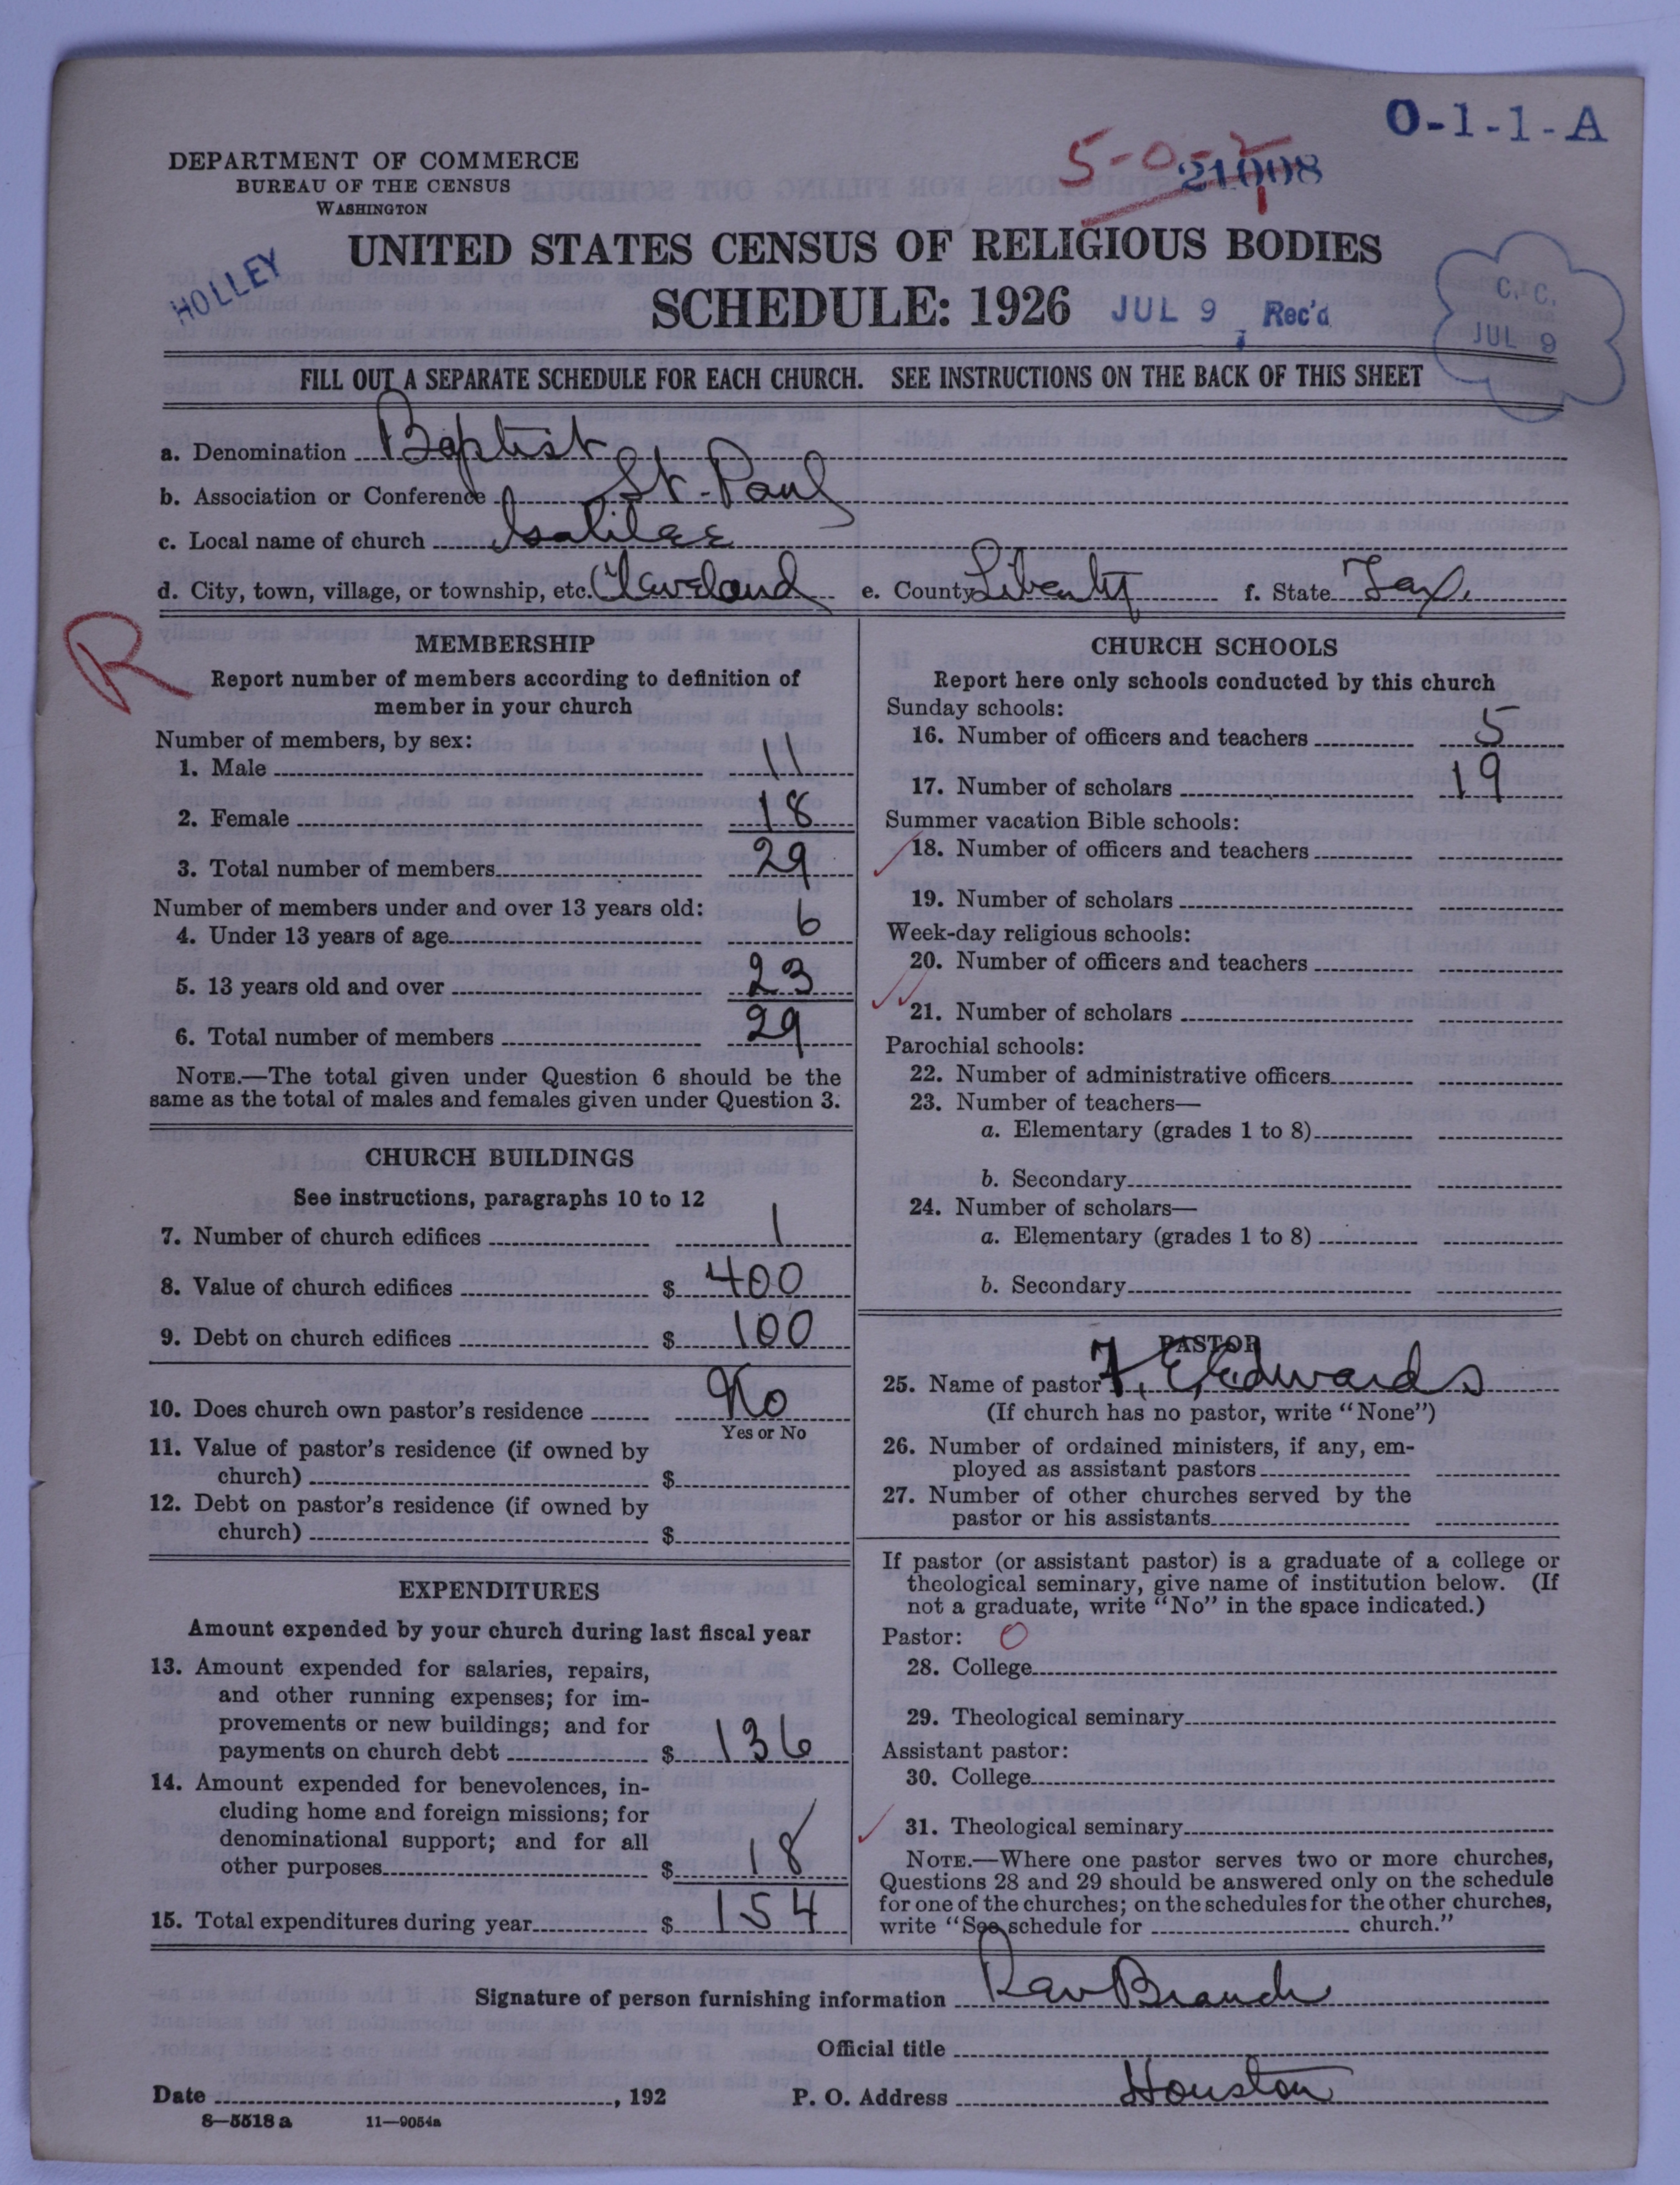 O-1-1-A
5-0-2
21098
DEPARTMENT OF COMMERCE
BUREAU OF THE CENSUS
WASHINGTON
HOLLEY
UNITED STATES CENSUS OF RELIGIOUS BODIES
SCHEDULE: 1926 JUL 9 Rec'd
C. C.
JUL 9
FILL OUT A SEPARATE SCHEDULE FOR EACH CHURCH. SEE INSTRUCTIONS ON THE BACK OF THIS SHEET
a. Denomination Baptist
b. Association or Conference St-Paul
c. Local name of church Galilee
d. City, town, village, or township, etc. Cleveland e. County Liberty f. State Tex.
R
MEMBERSHIP
Report number of members according to definition of
member in your church
Number of members, by sex:
1. Male 11
2. Female 18
3. Total number of members 29
Number of members under and over 13 years old:
4. Under 13 years of age 6
5. 13 years old and over 23
6. Total number of members 29
NOTE.—The total given under Question 6 should be the
same as the total of males and females given under Question 3.
CHURCH BUILDINGS
See instructions, paragraphs 10 to 12
7. Number of church edifices 1
8. Value of church edifices $ 400
9. Debt on church edifices $ 100
10. Does church own pastor's residence No
Yes or No
11. Value of pastor's residence (if owned by
church) $
12. Debt on pastor's residence (if owned by
church) $
EXPENDITURES
Amount expended by your church during last fiscal year
13. Amount expended for salaries, repairs,
and other running expenses; for im-
provements or new buildings; and for
payments on church debt $ 136
14. Amount expended for benevolences, in-
cluding home and foreign missions; for
denominational support; and for all
other purposes $ 18
15. Total expenditures during year $ 154
CHURCH SCHOOLS
Report here only schools conducted by this church
Sunday schools:
16. Number of officers and teachers 5
17. Number of scholars 19
Summer vacation Bible schools:
18. Number of officers and teachers
19. Number of scholars
Week-day religious schools:
20. Number of officers and teachers
21. Number of scholars
Parochial schools:
22. Number of administrative officers
23. Number of teachers—
a. Elementary (grades 1 to 8)
b. Secondary
24. Number of scholars—
a. Elementary (grades 1 to 8)
b. Secondary
PASTOR
25. Name of pastor F. E. Edwards
(If church has no pastor, write "None")
26. Number of ordained ministers, if any, em-
ployed as assistant pastors
27. Number of other churches served by the
pastor or his assistants
If pastor (or assistant pastor) is a graduate of a college or
theological seminary, give name of institution below. (If
not a graduate, write "No" in the space indicated.)
Pastor: O
28. College
29. Theological seminary
Assistant pastor:
30. College
31. Theological seminary
NOTE.—Where one pastor serves two or more churches,
Questions 28 and 29 should be answered only on the schedule
for one of the churches; on the schedules for the other churches,
write "See schedule for church."
Signature of person furnishing information Rev Branch
Official title
Date , 192 P. O. Address Houston
8—5518 a 11—9054a